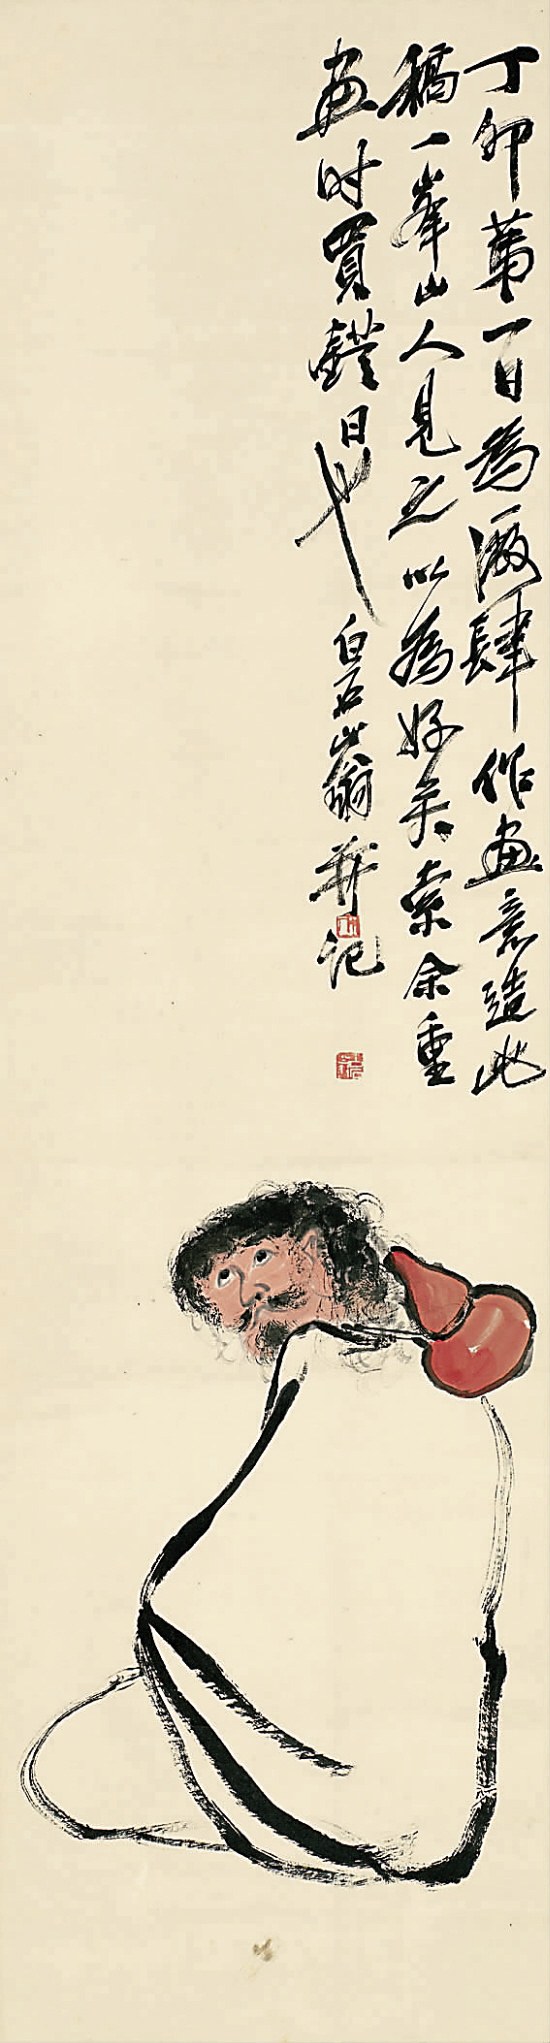 丁卯第一日為酒肆作畫意造此
稿一峯山人見之以為好矣索余重
画时買鐙日也
白石山翁并記